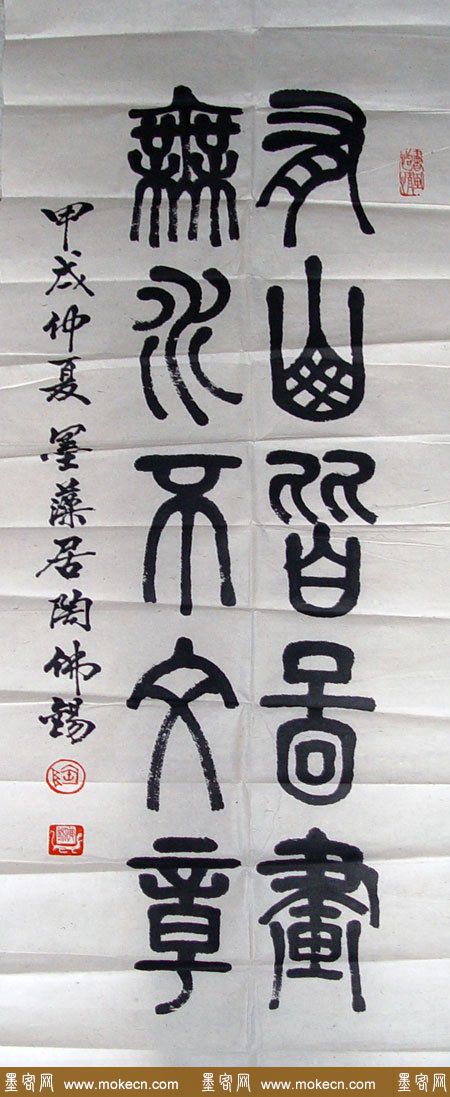 有山皆圖畫
無水不文章
甲戌仲夏墨藻居陶佛錫
墨客网 www.mokecn.com 墨客网 www.mokecn.com 墨客网